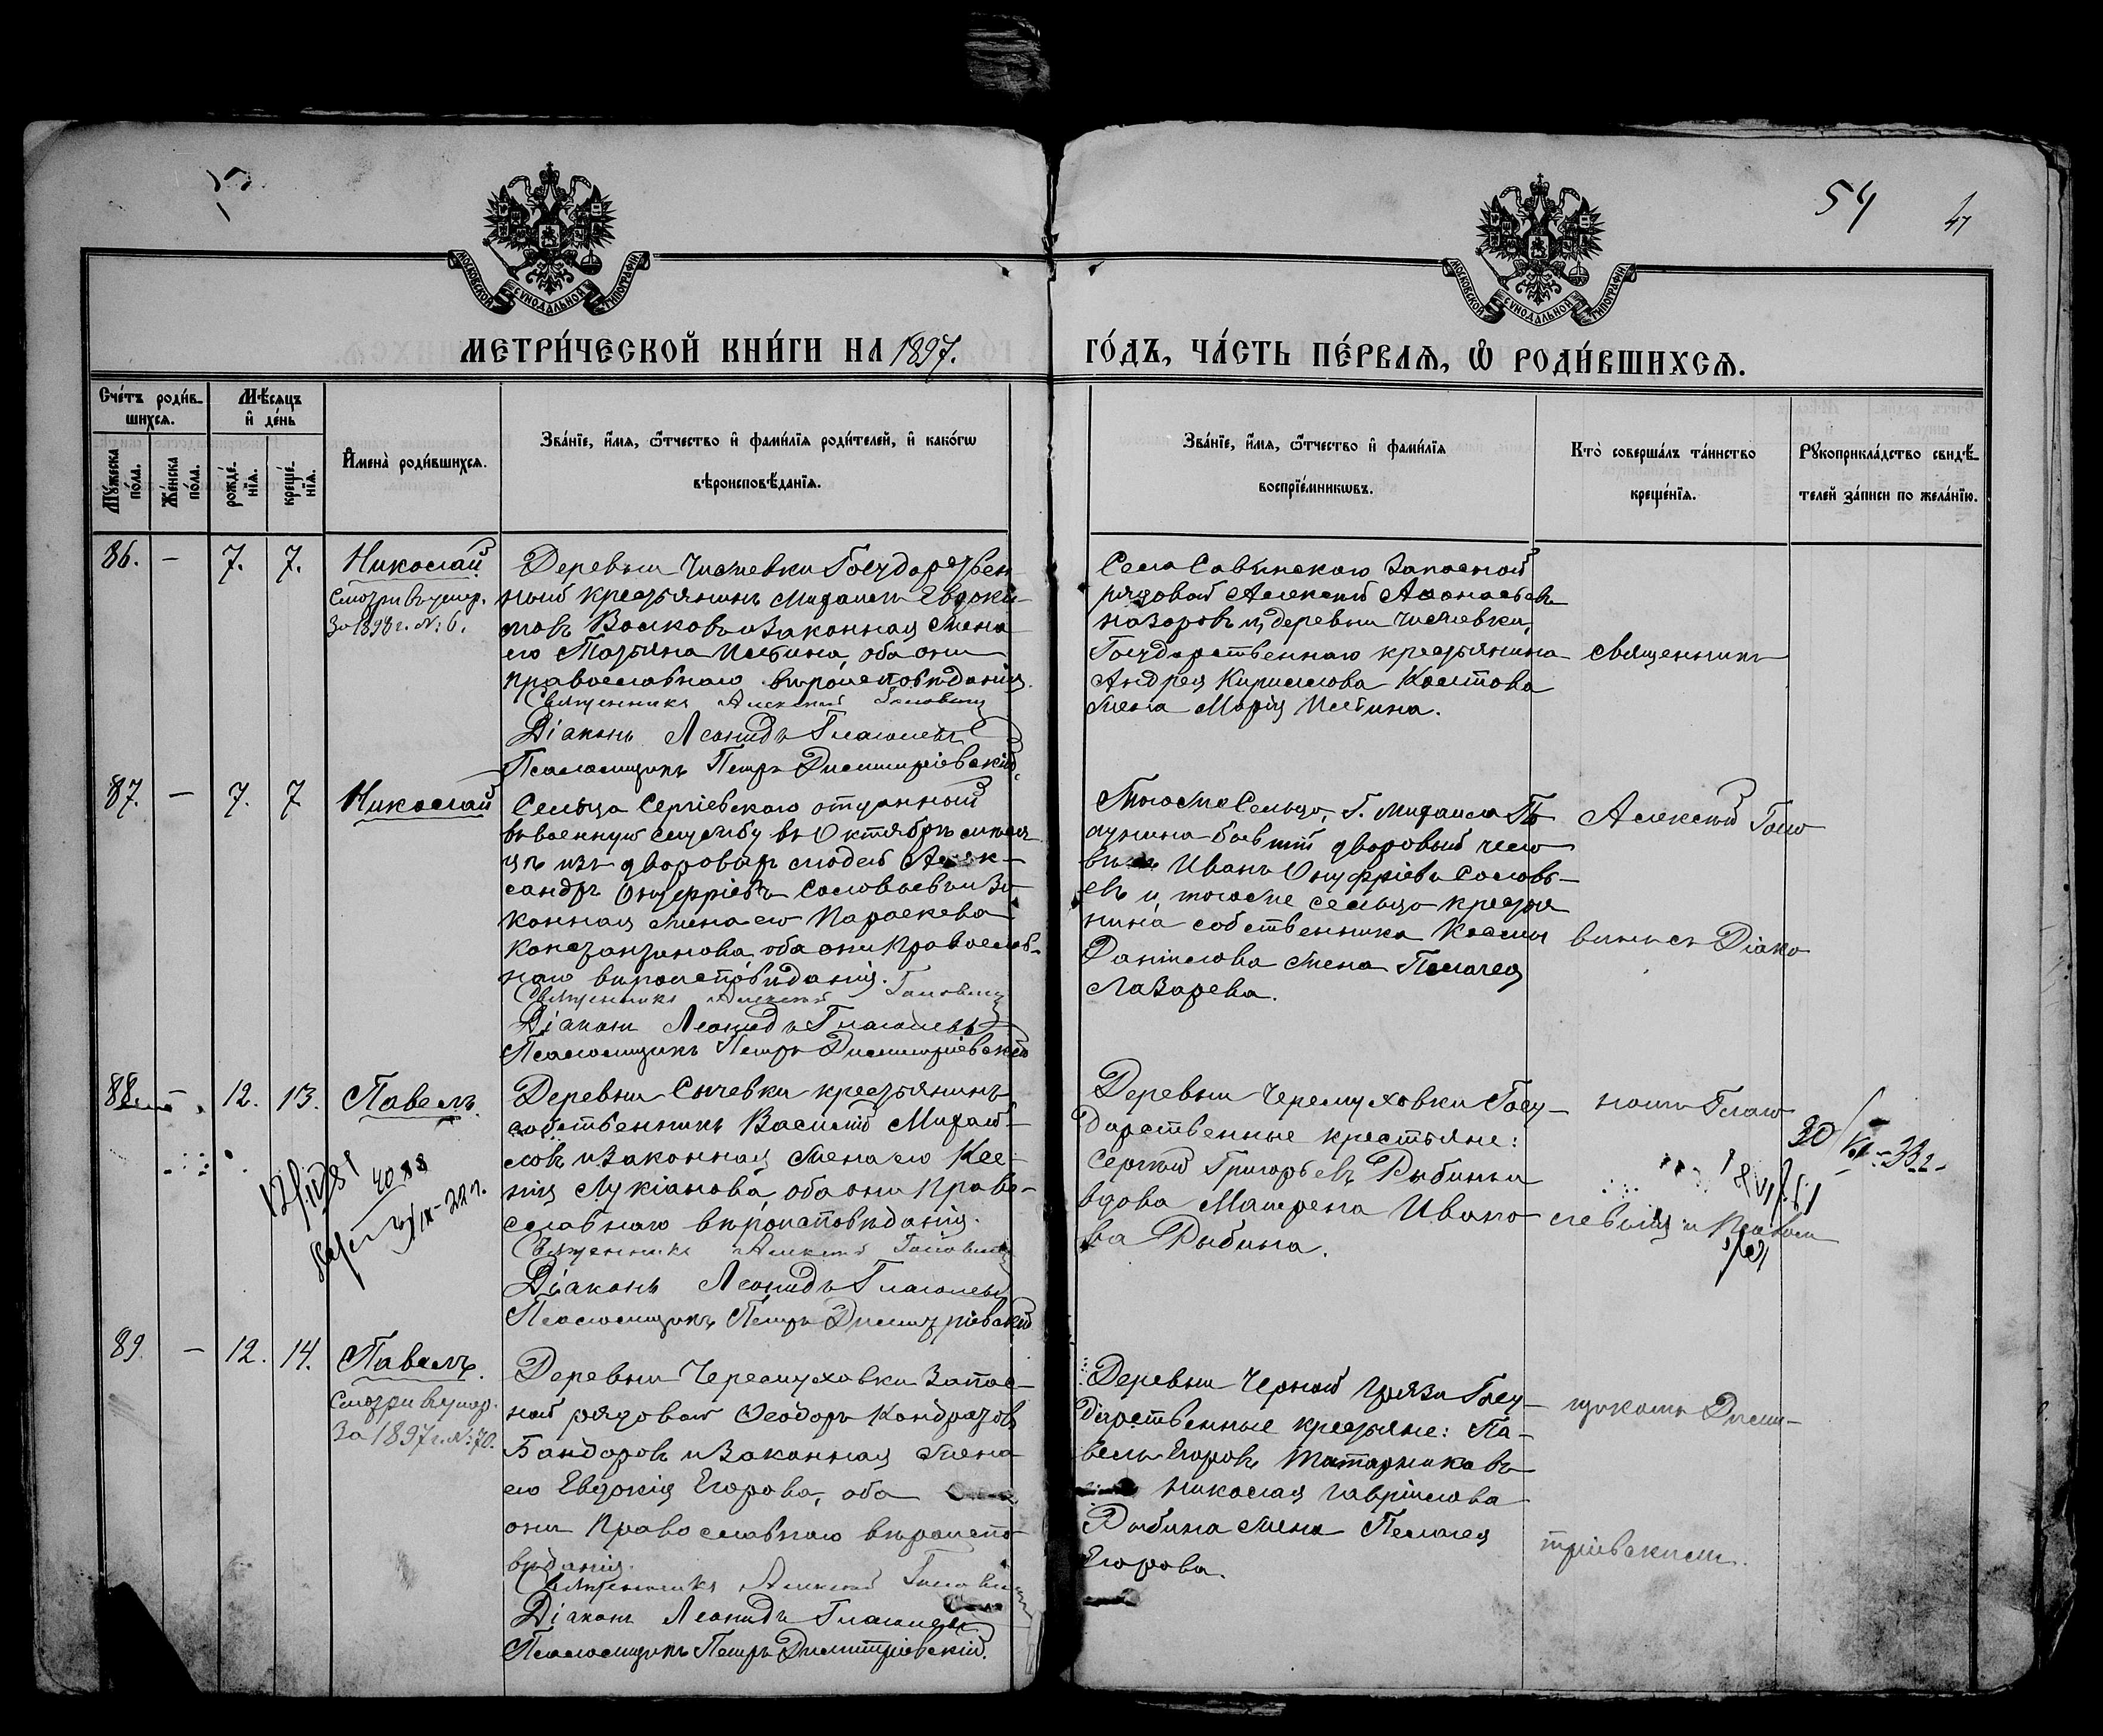 54
МОСКОВСКОЙ СѴНОДАЛЬНОЙ ТИПОГРАФІИ
МОСКОВСКОЙ СѴНОДАЛЬНОЙ ТИПОГРАФІИ
МЕТРИ́ЧЕСКОЙ КНИ́ГИ НА 1897.
ГО́ДЪ, ЧА́СТЬ ПЕ́РВАѦ, Ѡ҆ РОДИ́ВШИХСѦ.
Сче́тъ роди́в-
шихсѧ.
Мѣ́сѧцъ
и҆ де́нь
Мꙋ́жеска
пола.
Же́нска
по́ла.
рожде́-
нїѧ.
креще́-
нїѧ.
И҆мена̀ роди́вшихсѧ.
Зва́нїе, и҆́мѧ, ѻ҆́тчество и҆ фами́лїѧ роди́телей, и҆ како́гѡ
вѣроисповѣ́данїѧ.
Зва́нїе, и҆́мѧ, ѻ҆́тчество и҆ фами́лїѧ
воспрїе́мникѡвъ.
Кто̀ соверша́лъ та́инство
креще́нїѧ.
Рꙋкоприкла́дство свидѣ́-
телей за́писи по жела́нїю.
86. — 7. 7. Николай
Смотри въ умер.
За 1898 г. №: 6.
Деревни Чистевки Государствен
ный крестьянинъ Михаилъ Евдоки-
мовъ Волковъ и Законная Жена
его Татьяна Ильина, оба они
православнаго вѣроисповѣданія.
Священникъ Алексей Головинъ
Діаконъ Леонидъ Глаголевъ
Псаломщикъ Петръ Димитріевскій.
Села Савинскаго Запасной
рядовой Алексей Аѳанасьевъ
Назоровъ и, деревни Чистевки,
Государственнаго крестьянина
Андрея Кириллова Колтова
Жена Марія Ильина.
Священникъ
87. — 7. 7 Николай
Сельца Сергіевскаго отданный
въ военную службу въ Октябрѣ меся
цѣ изъ дворовыхъ людей Алек-
сандръ Онуфріевъ Соловьевъ и За-
конная Жена его Параскева
Константинова, оба они Православ-
наго вѣроисповѣданія.
Священникъ Алексей Головинъ
Діаконъ Леонидъ Глаголевъ
Псаломщикъ Петръ Димитріевскій
Тогоже Сельца, Г. Михаила
бывшій дворовый чело
Иванъ Онуфріевъ Соловь-
евъ и, тогоже сельца крестья
нина собственника Косьмы
Даніилова Жена Пелагея
Лазарева.
Алексей Голо
винъ съ Діако
88. — 12. 13. Павелъ.
4088
Деревни Сычевки крестьянинъ
собственникъ Василій Михай-
ловъ и Законная Жена его Ксе-
нія Лукіанова, оба они Право-
славнаго вѣроисповѣданія.
Священникъ Алексей Головинъ
Діаконъ Леонидъ Глаголевъ
Псаломщикъ Петръ Димитріевскій
Деревни Черемуховки Госу-
дарственные крестьяне:
Сергей Григорьевъ Рыбинъ и
вдова Матрена Ивано-
ва Рыбина.
номъ Глаго
левымъ и Псалом
89. — 12. 14. Павелъ.
Смотри въ умер.
За 1897 г. №: 70.
Деревни Черемуховки Запас-
ной рядовой Ѳеодоръ Кондратов
Бандоровъ и Законная Жена
его Евдокія Егорова, оба
они Православнаго вѣроиспо-
вѣданія.
Священникъ Алексей Головинъ
Діаконъ Леонидъ Глаголевъ
Псаломщикъ Петръ Димитріевскій.
Деревни Черной Грязи Госу-
дарственные крестьяне: Па-
велъ Егоровъ Татарниковъ
Николая Гавріилова
Рыбина Жена Пелагея
Егорова.
щикомъ Дими-
тріевскимъ.